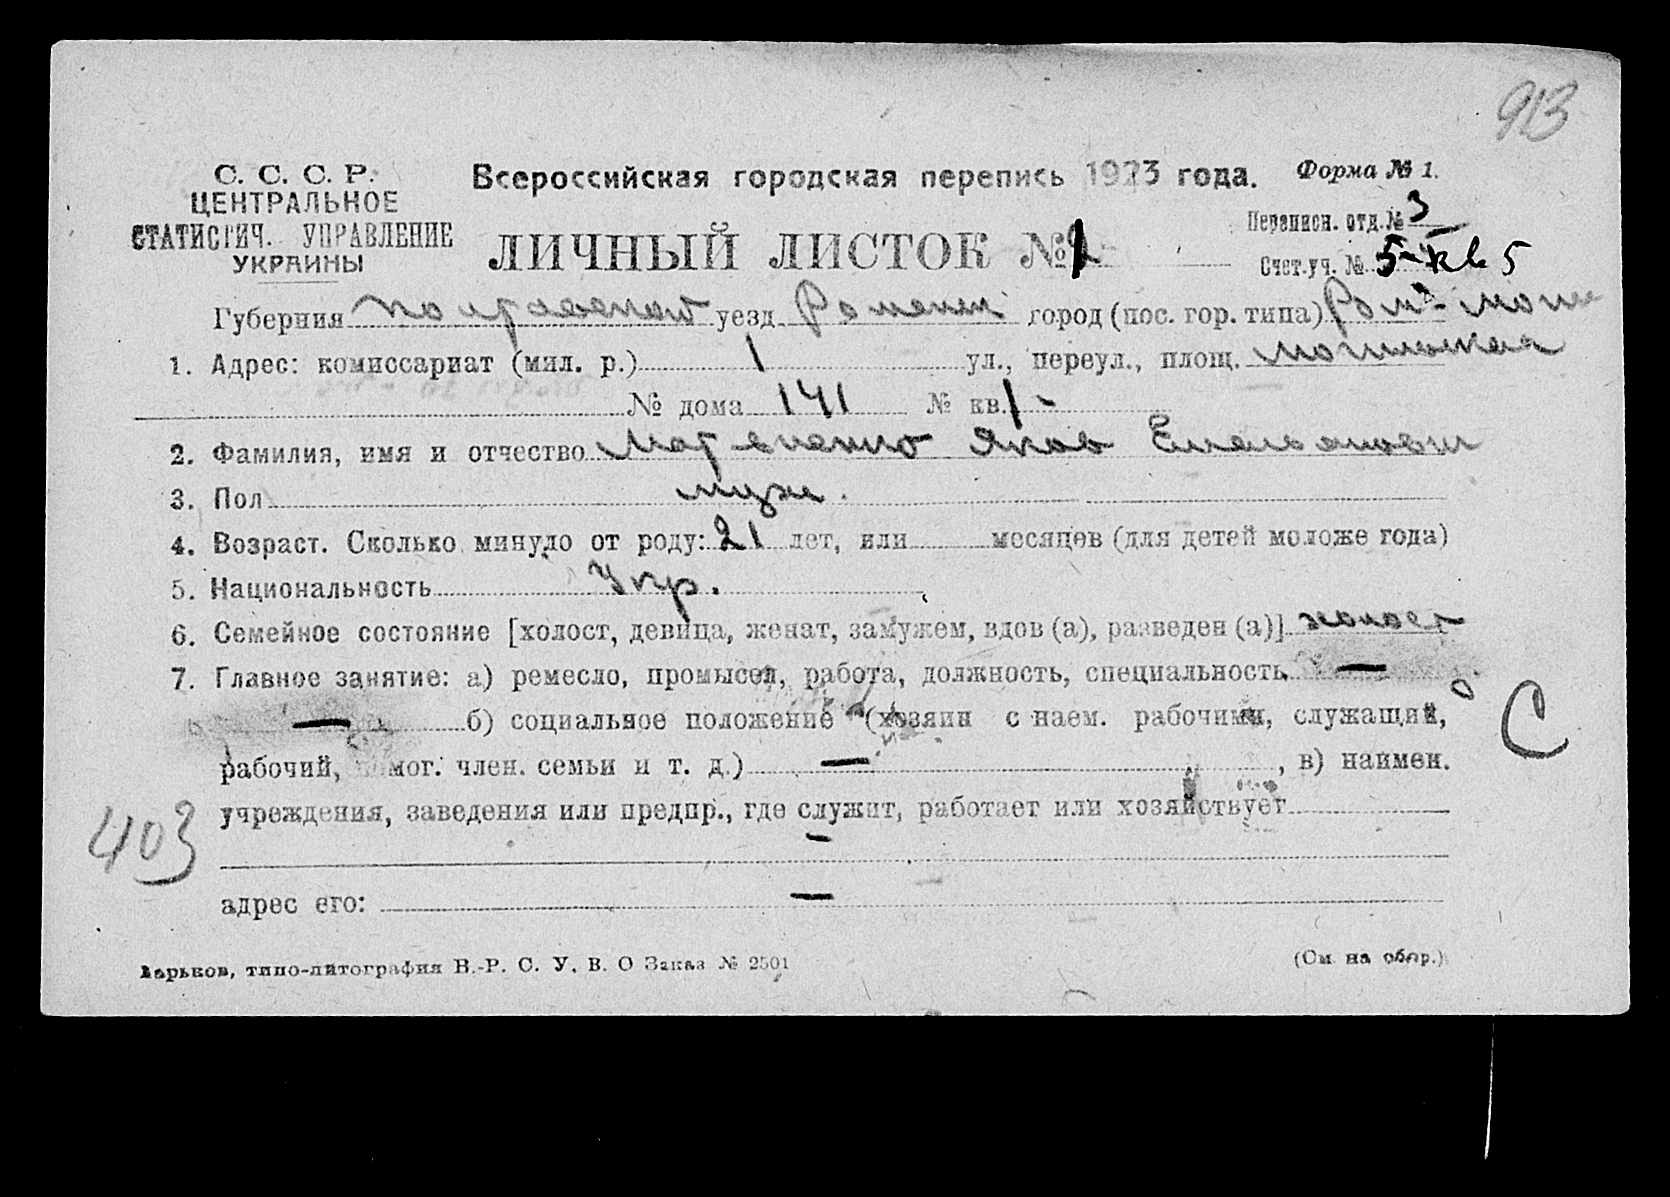 913
С. С. С. Р.
ЦЕНТРАЛЬНОЕ
СТАТИСТИЧ. УПРАВЛЕНИЕ
УКРАИНЫ
Всероссийская городская перепись 1923 года.
Форма № 1.
ЛИЧНЫЙ ЛИСТОК №
Переписн. отд. № 3
Счет. уч. № 5 кв 5
Губерния Полтавской уезд Роменск город (пос. гор. типа)
1. Адрес: комиссариат (мил. р.) 1 ул., переул., площ.
№ дома 141 № кв. 1 -
2. Фамилия, имя и отчество Яков Емельянович
3. Пол муж.
4. Возраст. Сколько минуло от роду: 21 лет, или месяцев (для детей моложе года)
5. Национальность Укр.
6. Семейное состояние [холост, девица, женат, замужем, вдов (а), разведен (а)] холост
7. Главное занятие: а) ремесло, промысел, работа, должность, специальность —
— б) социальное положение (хозяин с наем. рабочими, служащий,
рабочий, помог. член. семьи и т. д.) — , в) наимен.
учреждения, заведения или предпр., где служит, работает или хозяйствует
—
адрес его: —
С
403
Харьков, типо-литография В.-Р. С. У. В. О Заказ № 2501
(См на обор.)